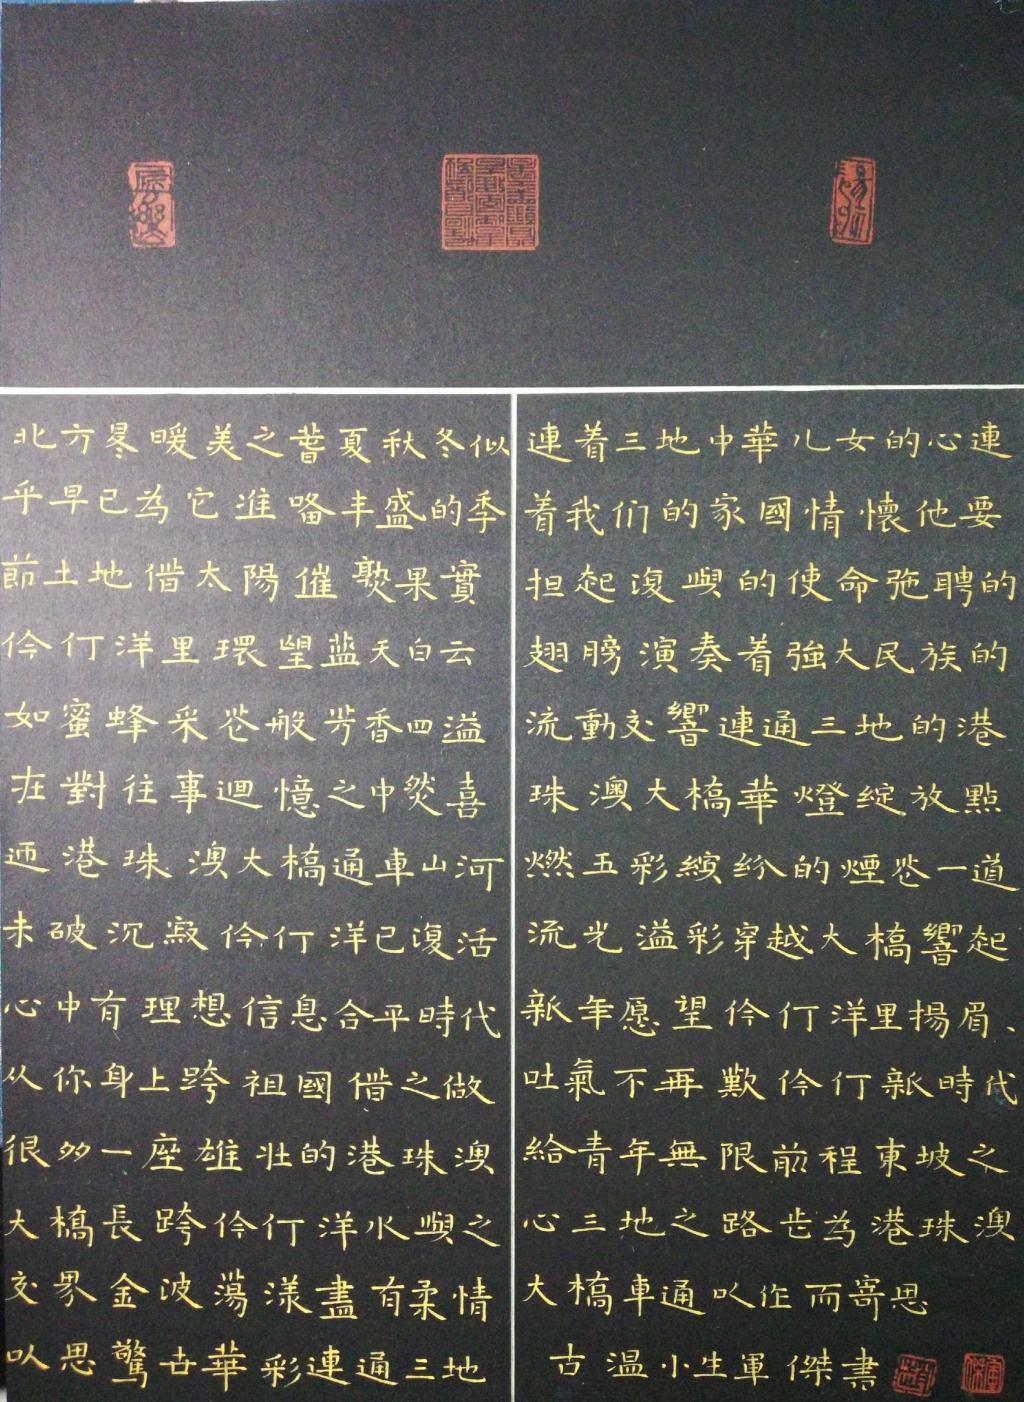 北方冬暖美之春夏秋冬似
乎早已為它准备丰盛的季
節土地借太陽催熟果實
伶仃洋里環望蓝天白云
如蜜蜂采花般芳香四溢
在對往事迴憶之中然喜
迊港珠澳大橋通車山河
未破沉寂伶仃洋已復活
心中有理想信息合平時代
从你身上跨祖國借之做
很多一座雄壮的港珠澳
大橋長跨伶仃洋水與之
交界金波蕩漾盡有柔情
以思驚世華彩連通三地
連着三地中華儿女的心連
着我们的家國情懷他要
担起復興的使命弛聘的
翅膀演奏着強大民族的
流動交響連通三地的港
珠澳大橋華燈綻放點
燃五彩缤纷的煙花一道
流光溢彩穿越大橋響起
新年愿望伶仃洋里揚眉、
吐氣不再歎伶仃新時代
給青年無限前程東坡之
心三地之路皆為港珠澳
大橋車通以作而寄思
古温小生軍傑書